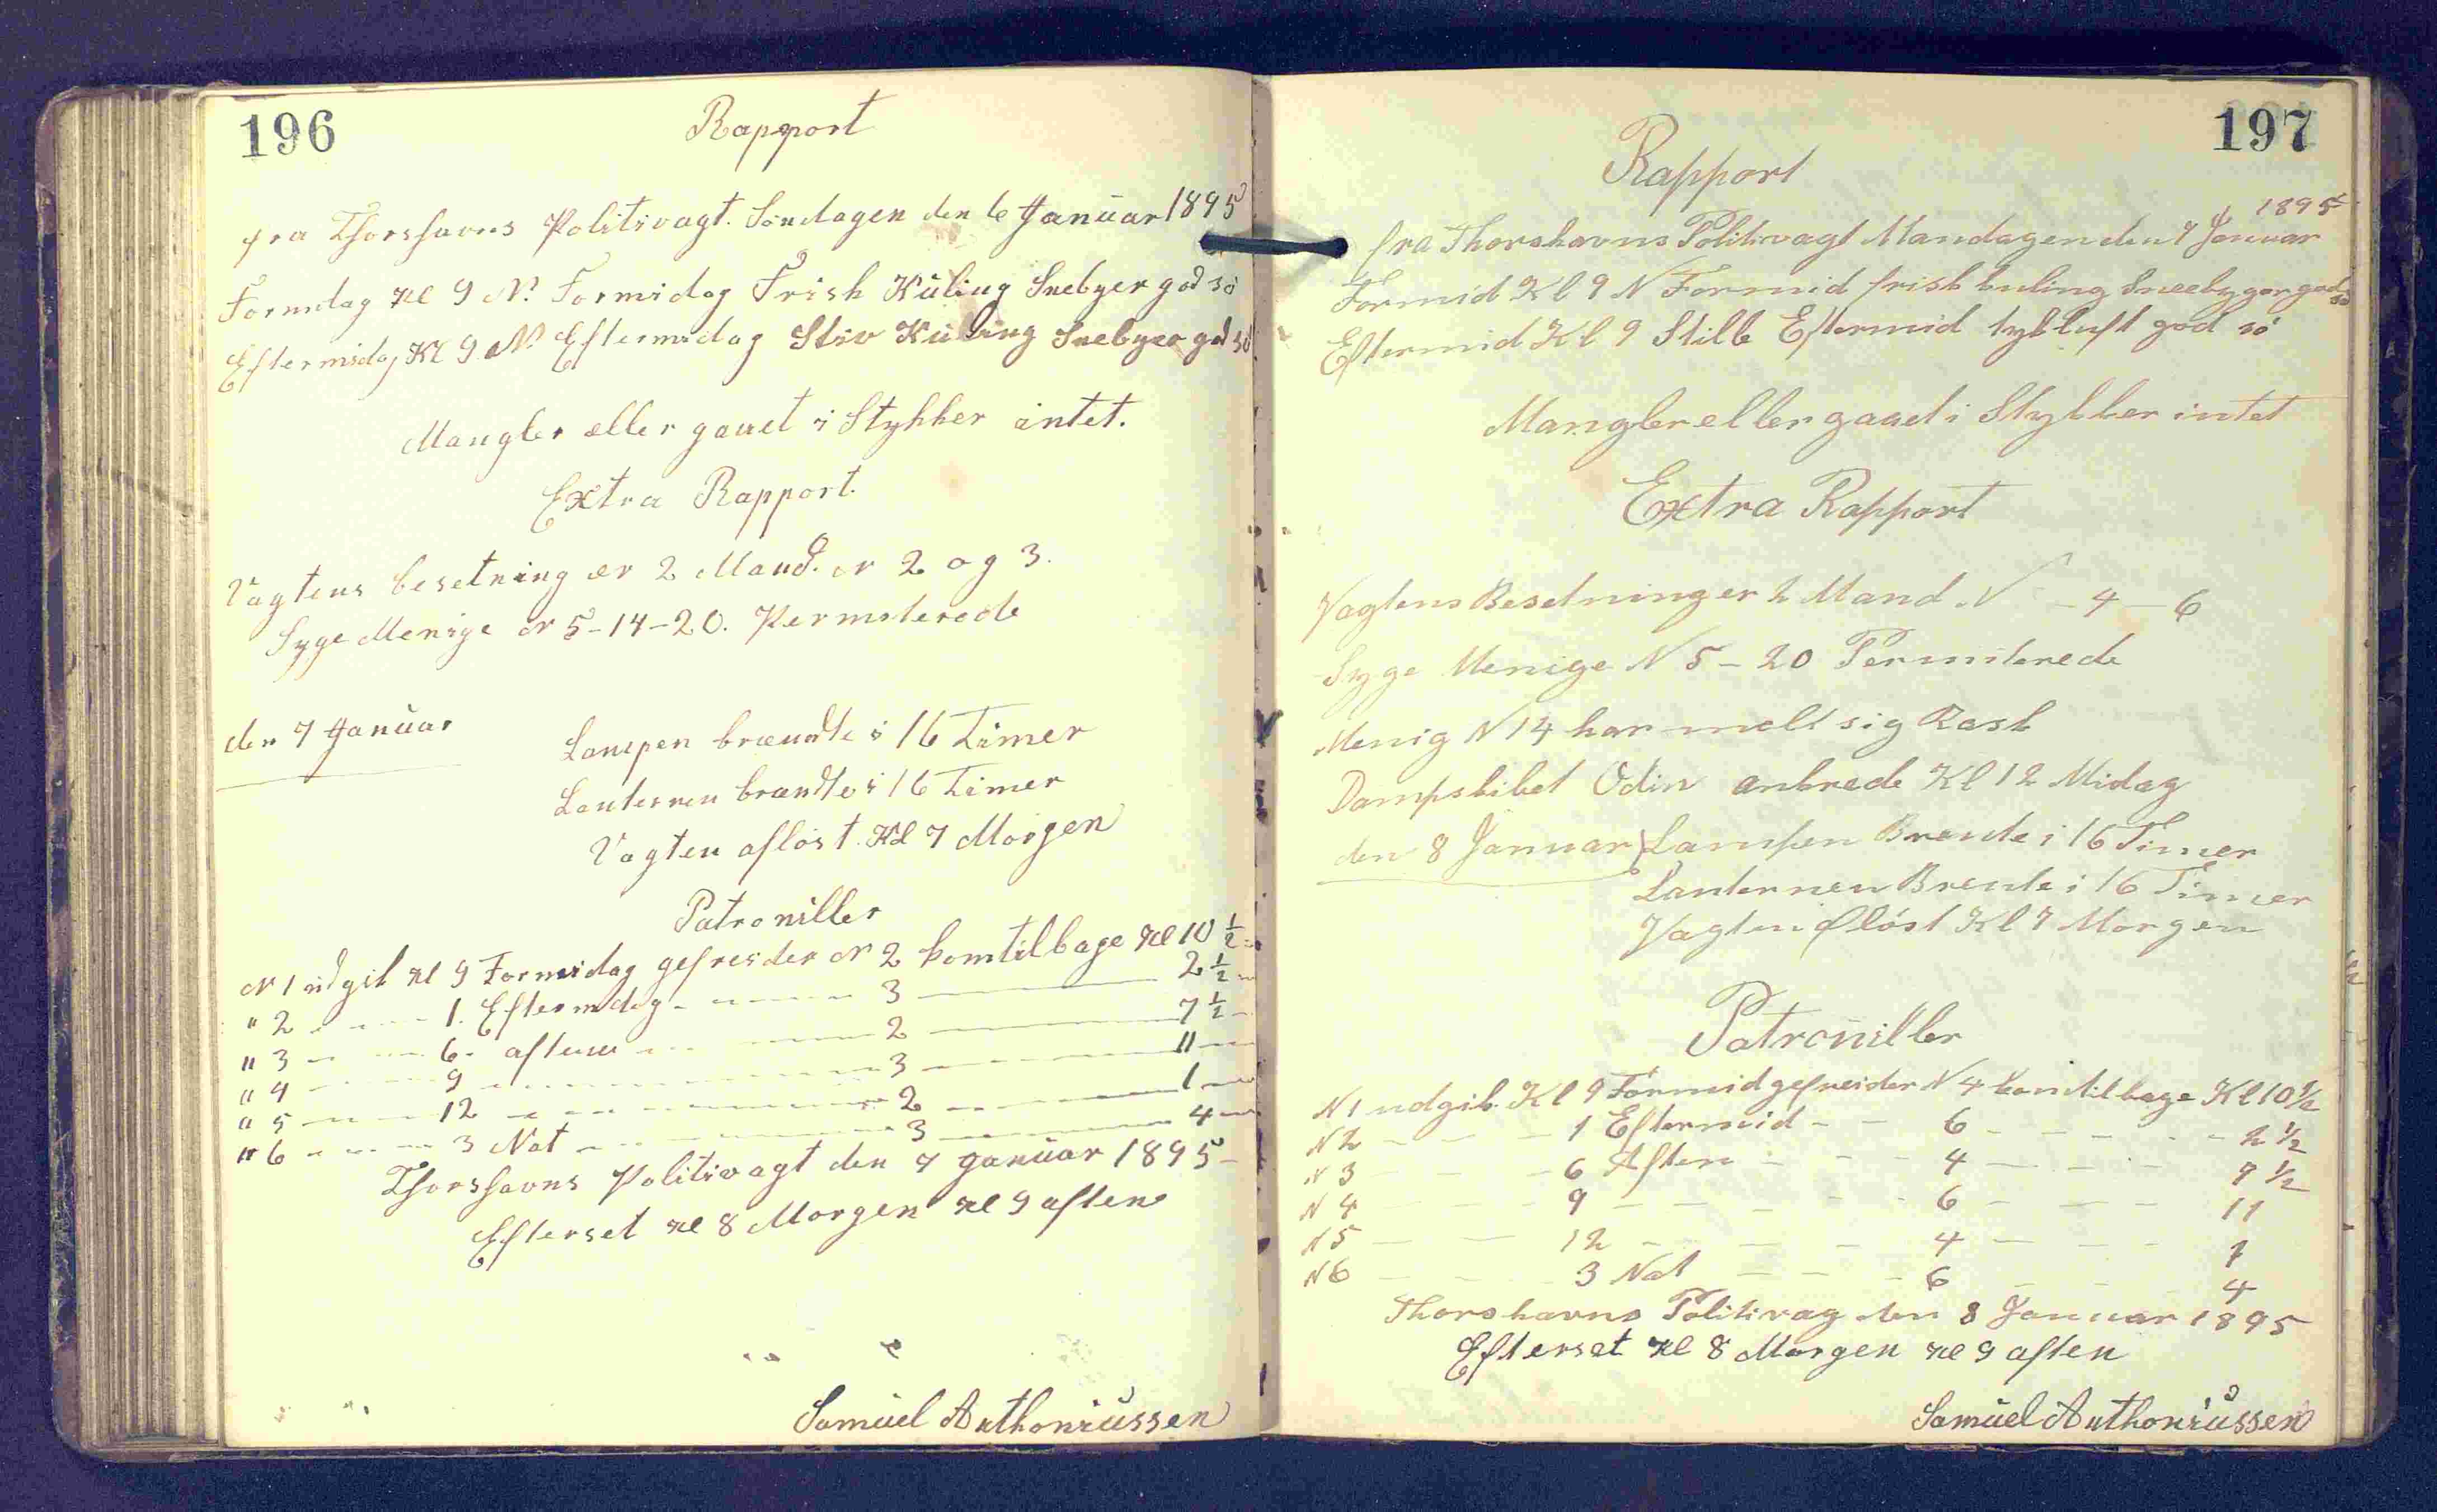 196
Rapport
fra Thorshavns Politivagt. Søndagen den 6 Januar 1895
Formdag Kl 9 N. Formidag Frisk Kuling Snebyer god sø
Eftermidag Kl 9 N Eftermidag Stiv Kuling Snebyer god sø
Mangler eller gaaet i Stykker intet.
Extra Rapport.
Vagtens besetning er 2 Mand. N 2 og 3.
Syge Menige N 5-14-20. Permiterede
den 7 Januar
Lampen brændte i 16 Timer
Lanternen brændte i 16 Timer
Vagten afløst. Kl 7 Morgen
Patroniller
N 1 udgik Kl 9 Formidag gefreider N 2 komtilbage Kl 10 1/2
" 2 - - - 1. Eftermdag - - - - 3 - 2 1/2
" 3 - - - 6 - aften - - - 2 - 7 1/2
" 4 - - - 9 - - - - 3 - 11
" 5 - - - 12 - - - - 2 - 1
" 6 - - - 3 Nat - - - 3 - 4
Thorshavns Politivagt den 7 Januar 1895
Efterset Kl 8 Morgen Kl 9 aften
Samuel Anthoniussen
197
Rapport
1895
fra Thorshavns Politivagt Mandagen den 7 Januar
Formid Kl 9 N Formid frisk kuling Sneebyger god sø
Eftermid Kl 9 Stille Eftermid tykluft god sø
Mangler eller gaaet i Stykker intet
Extra Rapport
Vagtens Besetning er 2 Mand N - 4 - 6
Syge Menige N 5 - 20 Permiterede
Menig N 14 har melt sig Rask
Dampskibet Odin ankrede Kl 12 Midag
den 8 Januar Lampen Brente i 16 Timer
Lanternen Brente i 16 Timer
Vagten Afløst Kl 7 Morgen
Patroniller
N 1 udgik Kl 9 Formid gefreider N 4 komtilbage Kl 10 1/2
N 2 - - - 1 Eftermid - - 6 - - - 2 1/2
N 3 - - - 6 Aften - - - 4 - - - 7 1/2
N 4 - - - 9 - - - - 6 - - - 11
N 5 - - - 12 - - - - 4 - - - 1
N 6 - - - 3 Nat - - - 6 - - - 4
Thorshavns Politivag den 8 Januar 1895
Efterset Kl 8 Morgen Kl 9 aften
Samuel Anthoniussen